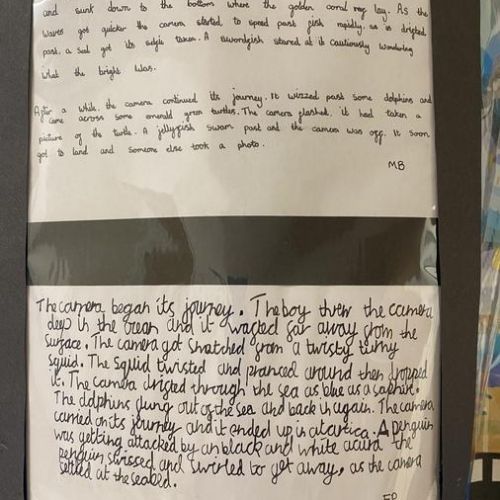 and sunk down to the bottom where the golden coral reef lay. As the
waves got quicker the camera started to speed past fish rapidly, as it drifted
past, a seal got its selfie taken. A swordfish stared at it cautiously wondering
what the bright was.
After a while, the camera continued its journey. It wizzed past some dolphins and
came across some emerald green turtles. The camera flashed, it had taken a
picture of the turtle. A jellyfish swam past and the camera was off. It soon
got to land and someone else took a photo.
MB
The camera began its journey. The boy threw the camera
deep in the ocean and it wafted far away from the
surface. The camera got snatched from a twisty turny
squid. The squid twisted and pranced around then dropped
it. The camera drifted through the sea as blue as a saphire.
The dolphins flung out of the sea and back in again. The camera
carried on its journey and it ended up in atartica. A penguin
was getting attacked by an black and white the
penguin and swirled to get away, as the camera
at the seabed.